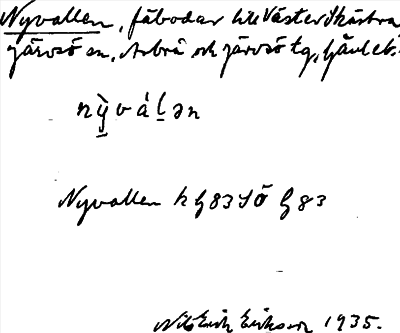 Nyvallen, fäbodar till Västerskästra
Järvsö sn, Arbrå och Järvsö tg, Gävleb.
nỳválən
Nyvallen k G 83 SÖ G 83
Nils Erik Eriksson 1935.